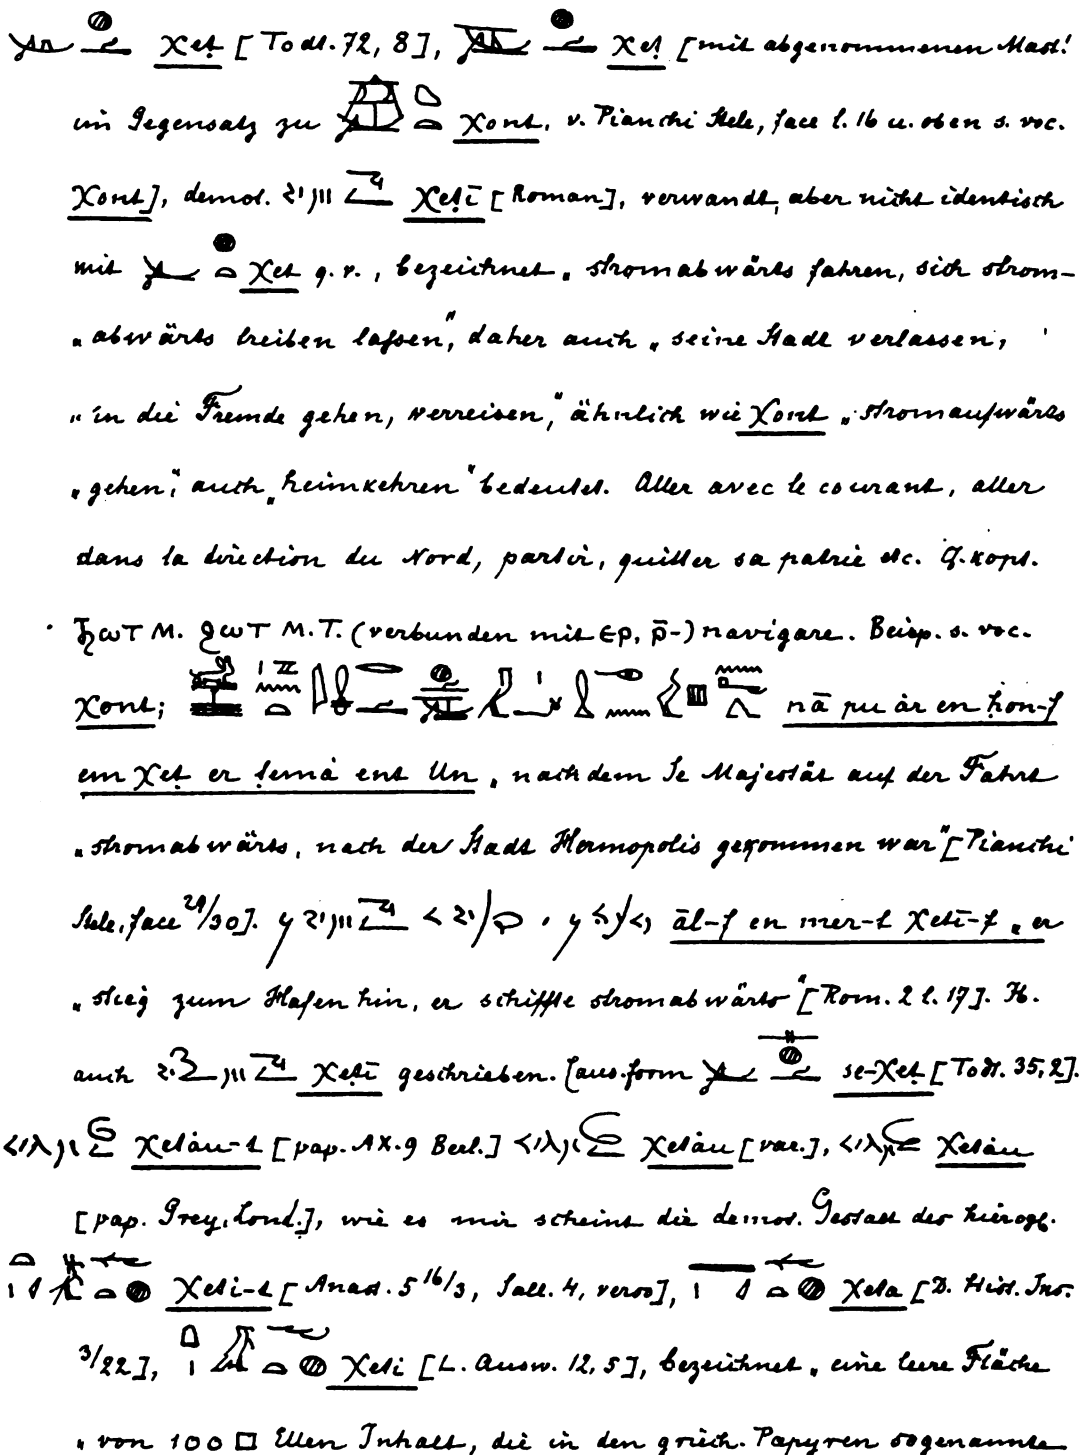 χeṭ [Todt. 72, 8], χeṭ [mit abgenommenen Mast!
im Gegensatz zu χont, v. Pianchi Stele, face l. 16 u. oben s. voc.
χont], demot. χeṭī [Roman], verwandt, aber nicht identisch
mit χet q. v., bezeichnet „stromabwärts fahren, sich strom-
„abwärts treiben laſsen“, daher auch „seine Stadt verlassen,
„in die Fremde gehen, verreisen,“ ähnlich wie χont „stromaufwärts
„gehen“, auch „heimkehren“ bedeutet. Aller avec le courant, aller
dans la direction du Nord, partir, quitter sa patrie etc. Cf. kopt.
ϧωτ M. ϩωτ M.T. (verbunden mit ϵρ, ρ̄-) navigare. Beisp. s. voc.
χont; nā pu àr en ḥon-f
em χeṭ er ṭemà ent Un „nachdem Se Majestät auf der Fahrt
„stromabwärts, nach der Stadt Hermopolis gekommen war“ [Pianchi
Stele, face 29/30]. āl-f en mer-t χetī-f „er
„stieg zum Hafen hin, er schiffte stromabwärts“ [Rom. 2 l. 17]. H.
auch χeṭī geschrieben. Caus. form se-χeṭ [Todt. 35, 2].
χetàu-t [pap. AX. 9 Berl.] χetàu [var.], χetàu
[pap. Grey. Lond.], wie es mir scheint die demot. Gestalt des hierogl.
χeti-t [Anast. 5 16/3, Sall. 4, verso], χeta [D. Hist. Ins.
3/22], χeti [L. Ausw. 12, 5], bezeichnet „eine leere Fläche
„von 100 □ Ellen Inhalt, die in den griech. Papyren sogenannte